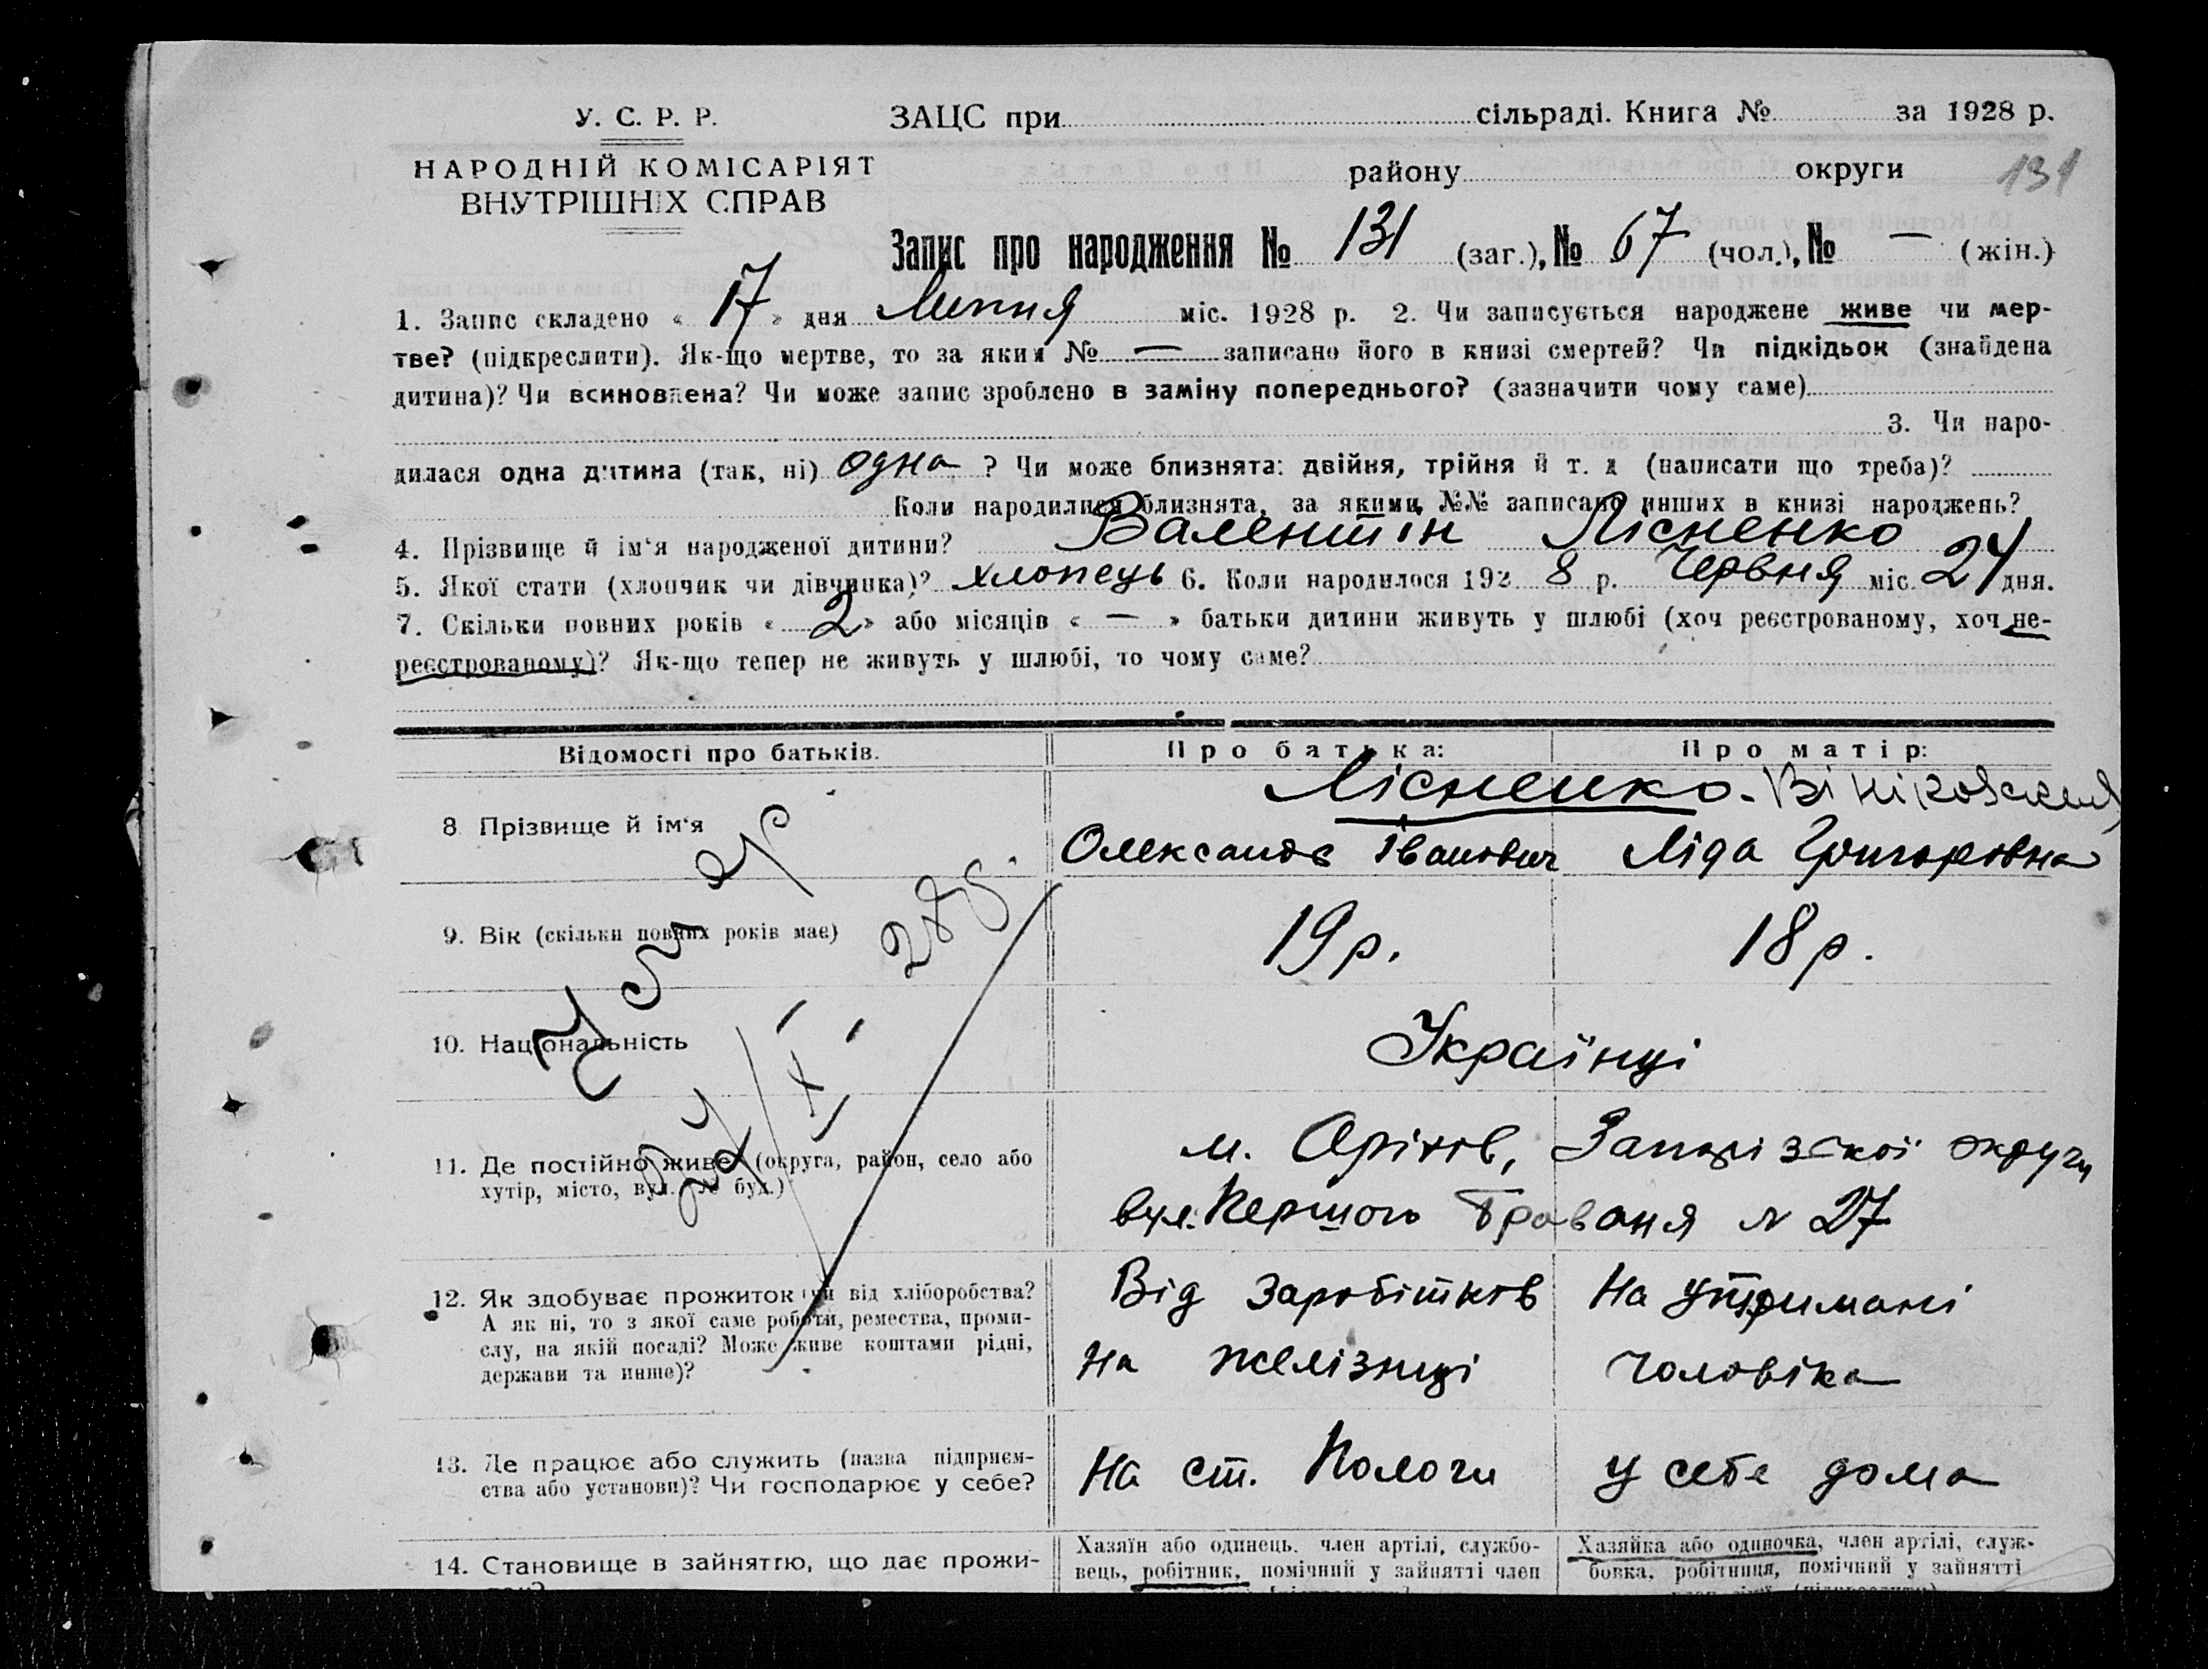 У. С. Р. Р.
НАРОДНІЙ КОМІСАРІЯТ
ВНУТРІШНІХ СПРАВ
ЗАЦС при сільраді. Книга № за 1928 р.
району округи
131
Запис про народження № 131 (заг.), № 67 (чол.), № — (жін.)
1. Запис складено « 17 » дня Липня міс. 1928 р. 2. Чи записується народжене живе чи мер-
тве? (підкреслити). Як-що мертве, то за яким № — записано його в книзі смертей? Чи підкідьок (знайдена
дитина)? Чи всиновлена? Чи може запис зроблено в заміну попереднього? (зазначити чому саме)
3. Чи наро-
дилася одна дитина (так, ні) одна ? Чи може близнята: двійня, трійня й т. д (написати що треба)?
Коли народилися близнята, за якими №№ записано инших в книзі народжень?
4. Прізвище й ім'я народженої дитини? Валентін Лісненко
5. Якої стати (хлопчик чи дівчинка)? хлопець 6. Коли народилося 192 8 р. Червня міс. 24 дня.
7. Скільки повних років « 2 » або місяців « — » батьки дитини живуть у шлюбі (хоч реєстрованому, хоч не-
реєстрованому)? Як-що тепер не живуть у шлюбі, то чому саме?
Відомості про батьків. Про батька: Про матір:
8. Прізвище й ім'я
Лісненко -
Олександр Іванович Ліда Григоровна
9. Вік (скільки повних років має) 19 р. 18 р.
10. Національність Українці
11. Де постійно живе (округа, район, село або
хутір, місто, вул. № буд.)
м. Оріхов, Запорізскої округи
вул. Першого Травоня № 27
12. Як здобуває прожиток (чи від хліборобства?
А як ні, то з якої саме роботи, ремества, проми-
слу, на якій посаді? Може живе коштами рідні,
держави та инше)?
Від заробітков
на желізниці
На утримані
чоловіка
13. Де працює або служить (назва підприєм-
ства або установи)? Чи господарює у себе?
На ст. Пологи
У себе дома
14. Становище в зайняттю, що дає прожи-
Хазяїн або одинець, член артілі, службо-
вець, робітник, помічний у зайнятті член
Хазяйка або одиночка, член артілі, служ-
бовка, робітниця, помічний у зайнятті
Умер
28 р.